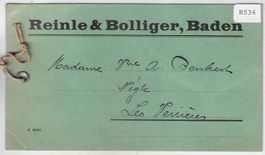 B536
Reinle & Bolliger, Baden
Madame Vve A. Benkert
Négte
Les Verrières